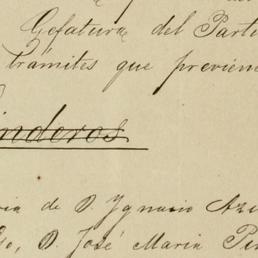 Gefatura del Parti
trámites que previen
inderos
ria de D. Ygnacio Azc
so, D. José Maria Pi